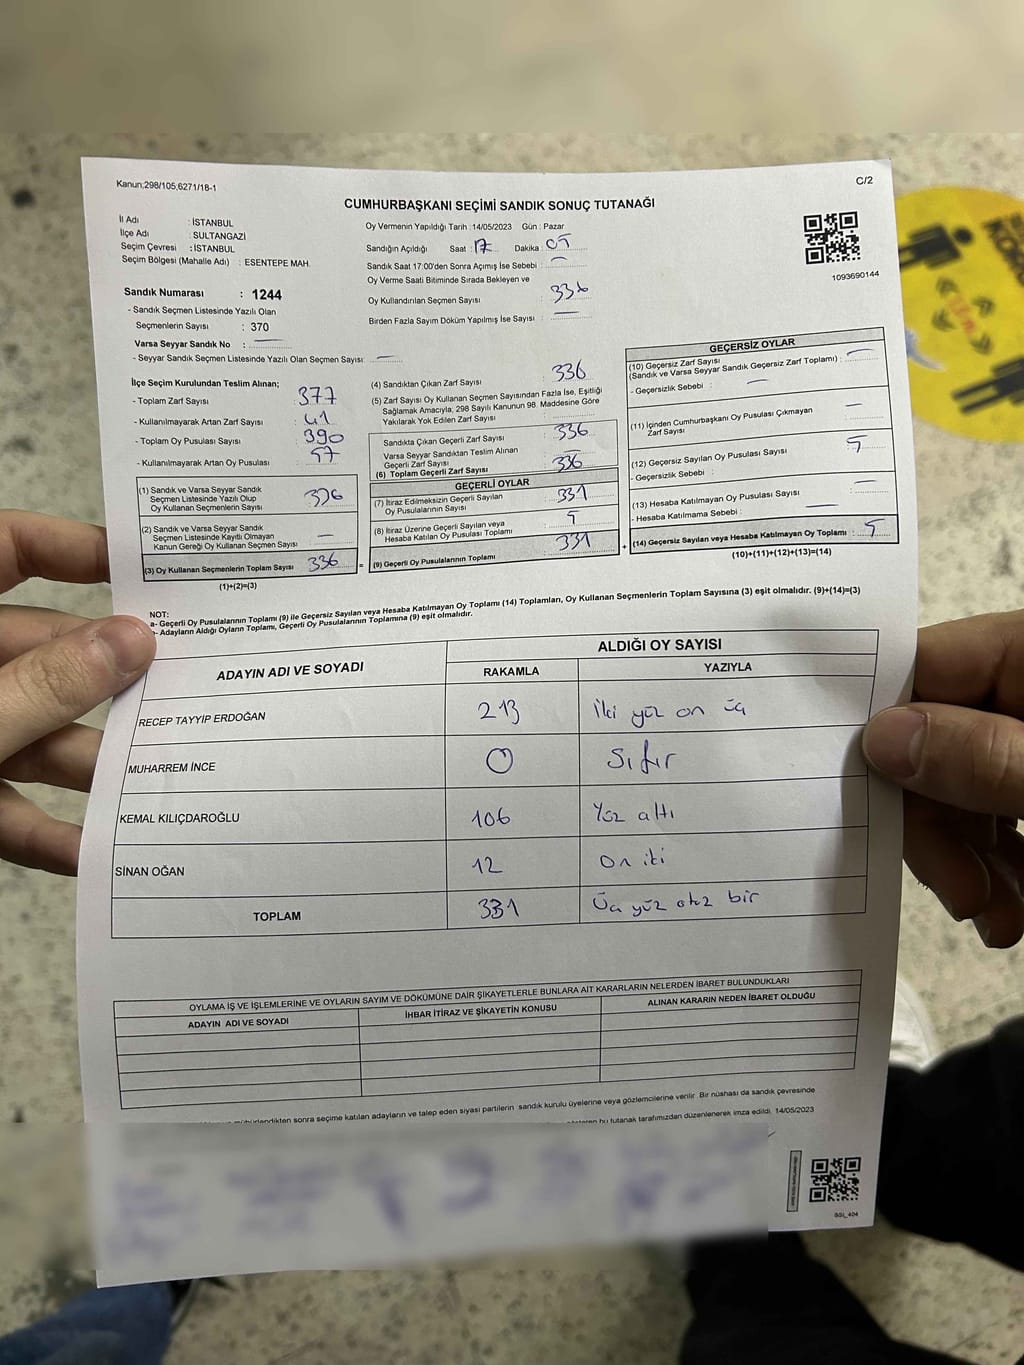 Kanun;298/105,6271/18-1
C/2
CUMHURBAŞKANI SEÇİMİ SANDIK SONUÇ TUTANAĞI
İl Adı : İSTANBUL
İlçe Adı : SULTANGAZİ
Seçim Çevresi : İSTANBUL
Seçim Bölgesi (Mahalle Adı) : ESENTEPE MAH.
Sandık Numarası : 1244
- Sandık Seçmen Listesinde Yazılı Olan
Seçmenlerin Sayısı : 370
Varsa Seyyar Sandık No : —
- Seyyar Sandık Seçmen Listesinde Yazılı Olan Seçmen Sayısı: —
Oy Vermenin Yapıldığı Tarih :14/05/2023 Gün : Pazar
Sandığın Açıldığı Saat : 17 Dakika : 05
Sandık Saat 17:00'den Sonra Açımış İse Sebebi : —
Oy Verme Saati Bitiminde Sırada Bekleyen ve
Oy Kullandırılan Seçmen Sayısı : 336
Birden Fazla Sayım Döküm Yapılmış İse Sayısı : —
1093690144
İlçe Seçim Kurulundan Teslim Alınan;
- Toplam Zarf Sayısı : 377
- Kullanılmayarak Artan Zarf Sayısı : 41
- Toplam Oy Pusulası Sayısı : 390
- Kullanılmayarak Artan Oy Pusulası : 57
(1) Sandık ve Varsa Seyyar Sandık
Seçmen Listesinde Yazılı Olup
Oy Kullanan Seçmenlerin Sayısı : 336
(2) Sandık ve Varsa Seyyar Sandık
Seçmen Listesinde Kayıtlı Olmayan
Kanun Gereği Oy Kullanan Seçmen Sayısı : —
(3) Oy Kullanan Seçmenlerin Toplam Sayısı : 336
(1)+(2)=(3)
=
(4) Sandıktan Çıkan Zarf Sayısı : 336
(5) Zarf Sayısı Oy Kullanan Seçmen Sayısından Fazla İse, Eşitliği
Sağlamak Amacıyla, 298 Sayılı Kanunun 98. Maddesine Göre
Yakılarak Yok Edilen Zarf Sayısı :
Sandıkta Çıkan Geçerli Zarf Sayısı : 336
Varsa Seyyar Sandıktan Teslim Alınan
Geçerli Zarf Sayısı :
(6) Toplam Geçerli Zarf Sayısı : 336
GEÇERLİ OYLAR
(7) İtiraz Edilmeksizin Geçerli Sayılan
Oy Pusulalarının Sayısı : 331
(8) İtiraz Üzerine Geçerli Sayılan veya
Hesaba Katılan Oy Pusulası Toplamı : 5
(9) Geçerli Oy Pusulalarının Toplamı : 331
+
GEÇERSİZ OYLAR
(10) Geçersiz Zarf Sayısı
(Sandık ve Varsa Seyyar Sandık Geçersiz Zarf Toplamı) : —
- Geçersizlik Sebebi : —
(11) İçinden Cumhurbaşkanı Oy Pusulası Çıkmayan
Zarf Sayısı : —
(12) Geçersiz Sayılan Oy Pusulası Sayısı : 5
- Geçersizlik Sebebi :
(13) Hesaba Katılmayan Oy Pusulası Sayısı : —
- Hesaba Katılmama Sebebi : —
(14) Geçersiz Sayılan veya Hesaba Katılmayan Oy Toplamı : 5
(10)+(11)+(12)+(13)=(14)
NOT:
a- Geçerli Oy Pusulalarının Toplamı (9) ile Geçersiz Sayılan veya Hesaba Katılmayan Oy Toplamı (14) Toplamları, Oy Kullanan Seçmenlerin Toplam Sayısına (3) eşit olmalıdır. (9)+(14)=(3)
- Adayların Aldığı Oyların Toplamı, Geçerli Oy Pusulalarının Toplamına (9) eşit olmalıdır.
ADAYIN ADI VE SOYADI
ALDIĞI OY SAYISI
RAKAMLA YAZIYLA
RECEP TAYYIP ERDOĞAN 213 İki yüz on üç
MUHARREM İNCE 0 Sıfır
KEMAL KILIÇDAROĞLU 106 Yüz altı
SİNAN OĞAN 12 On iki
TOPLAM 331 Üç yüz otuz bir
OYLAMA İŞ VE İŞLEMLERİNE VE OYLARIN SAYIM VE DÖKÜMÜNE DAİR ŞİKAYETLERLE BUNLARA AİT KARARLARIN NELERDEN İBARET BULUNDUKLARI
ADAYIN ADI VE SOYADI İHBAR İTİRAZ VE ŞİKAYETİN KONUSU ALINAN KARARIN NEDEN İBARET OLDUĞU
sonra seçime katılan adayların ve talep eden siyasi partilerin sandık kurulu üyelerine veya gözlemcilerine verilir. Bir nüshası da sandık çevresinde
bu tutanak tarafımızdan düzenlenerek imza edildi. 14/05/2023